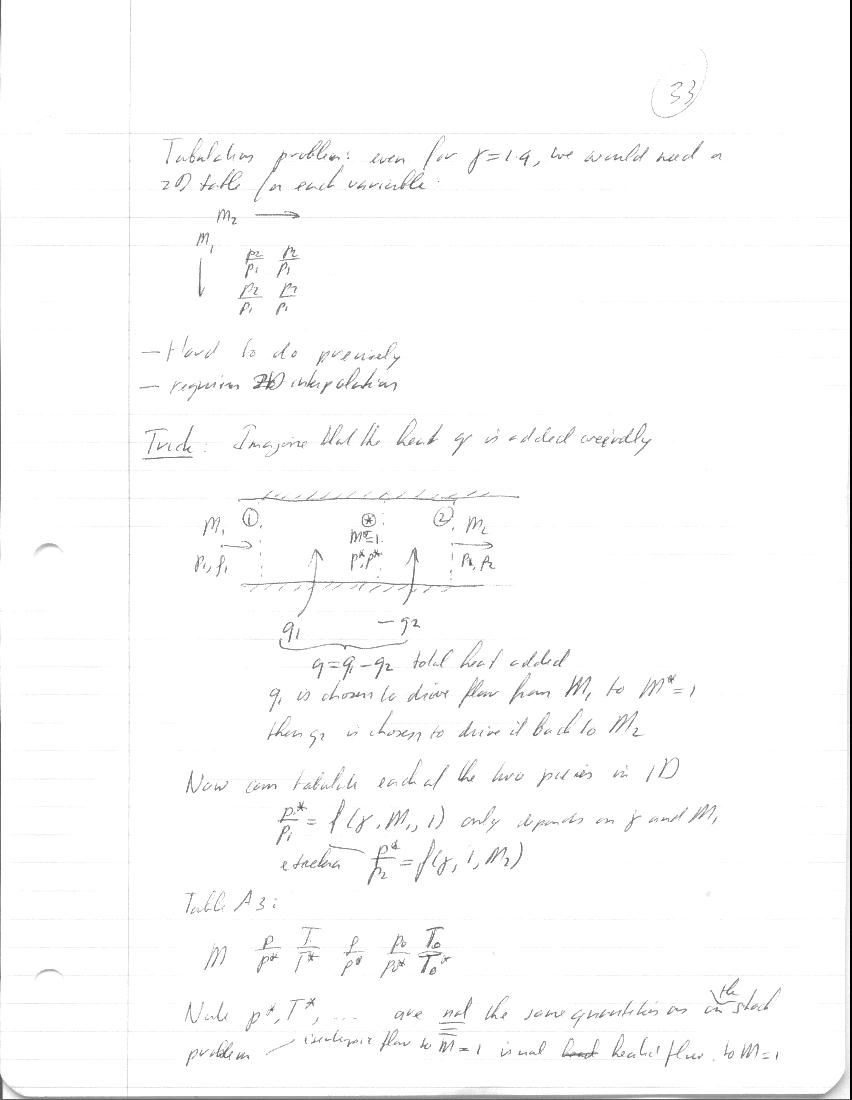 33
Tabulation problem: even for γ=1.4, we would need a
2D table for each variable:
M₂ →
M₁
↓
p₂/p₁ p₂/p₁
p₂/p₁ p₂/p₁
— Hard to do precisely
— requires 2D interpolation
Trick: Imagine that the heat q is added weirdly
M₁ ① ⊛ ② M₂
M*=1
p₁, ρ₁ p*, ρ* p₂, ρ₂
q₁ -q₂
q=q₁-q₂ total heat added
q₁ is chosen to drive flow from M₁ to M*=1
then q₂ is chosen to drive it back to M₂
Now can tabulate each of the two pieces in 1D
p*/p₁ = f(γ, M₁, 1) only depends on γ and M₁
etcetera p*/p₂ = f(γ, 1, M₂)
Table A3:
M p/p* T/T* ρ/ρ* p₀/p₀* T₀/T₀*
Note p*, T*, ... are not the same quantities as in the shock
problem isentropic flow to M=1 is not heated flow to M=1